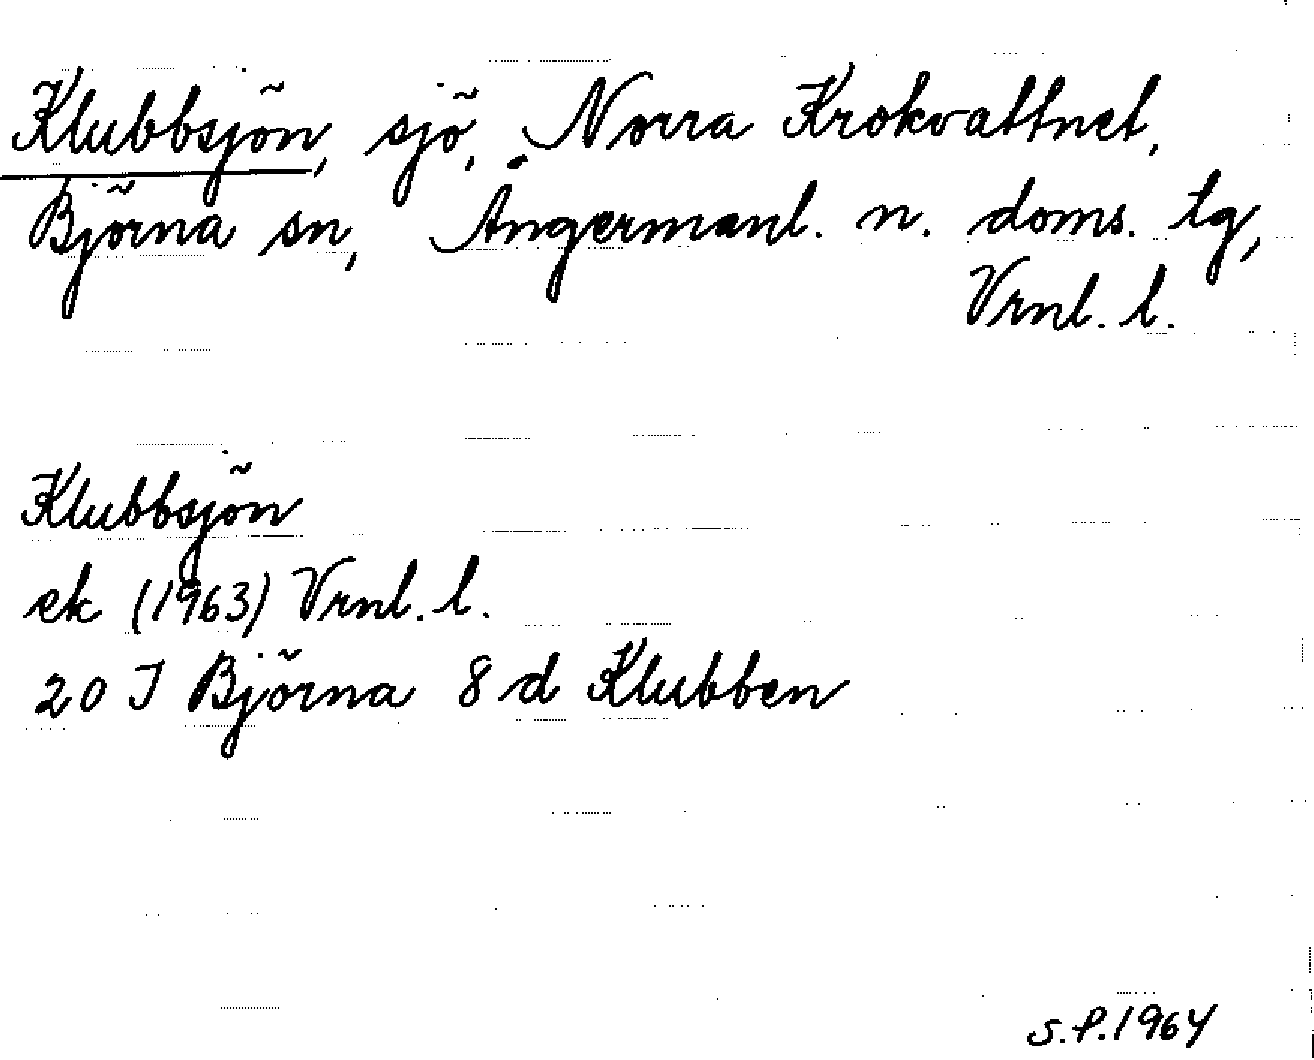 Klubbsjön, sjö, Norra Krokvattnet,
Björna sn, Ångermanl. n. doms. tg,
Vrnl. l.
Klubbsjön
ek (1963) Vrnl. l.
20 I Björna 8 d Klubben
S.P. 1964